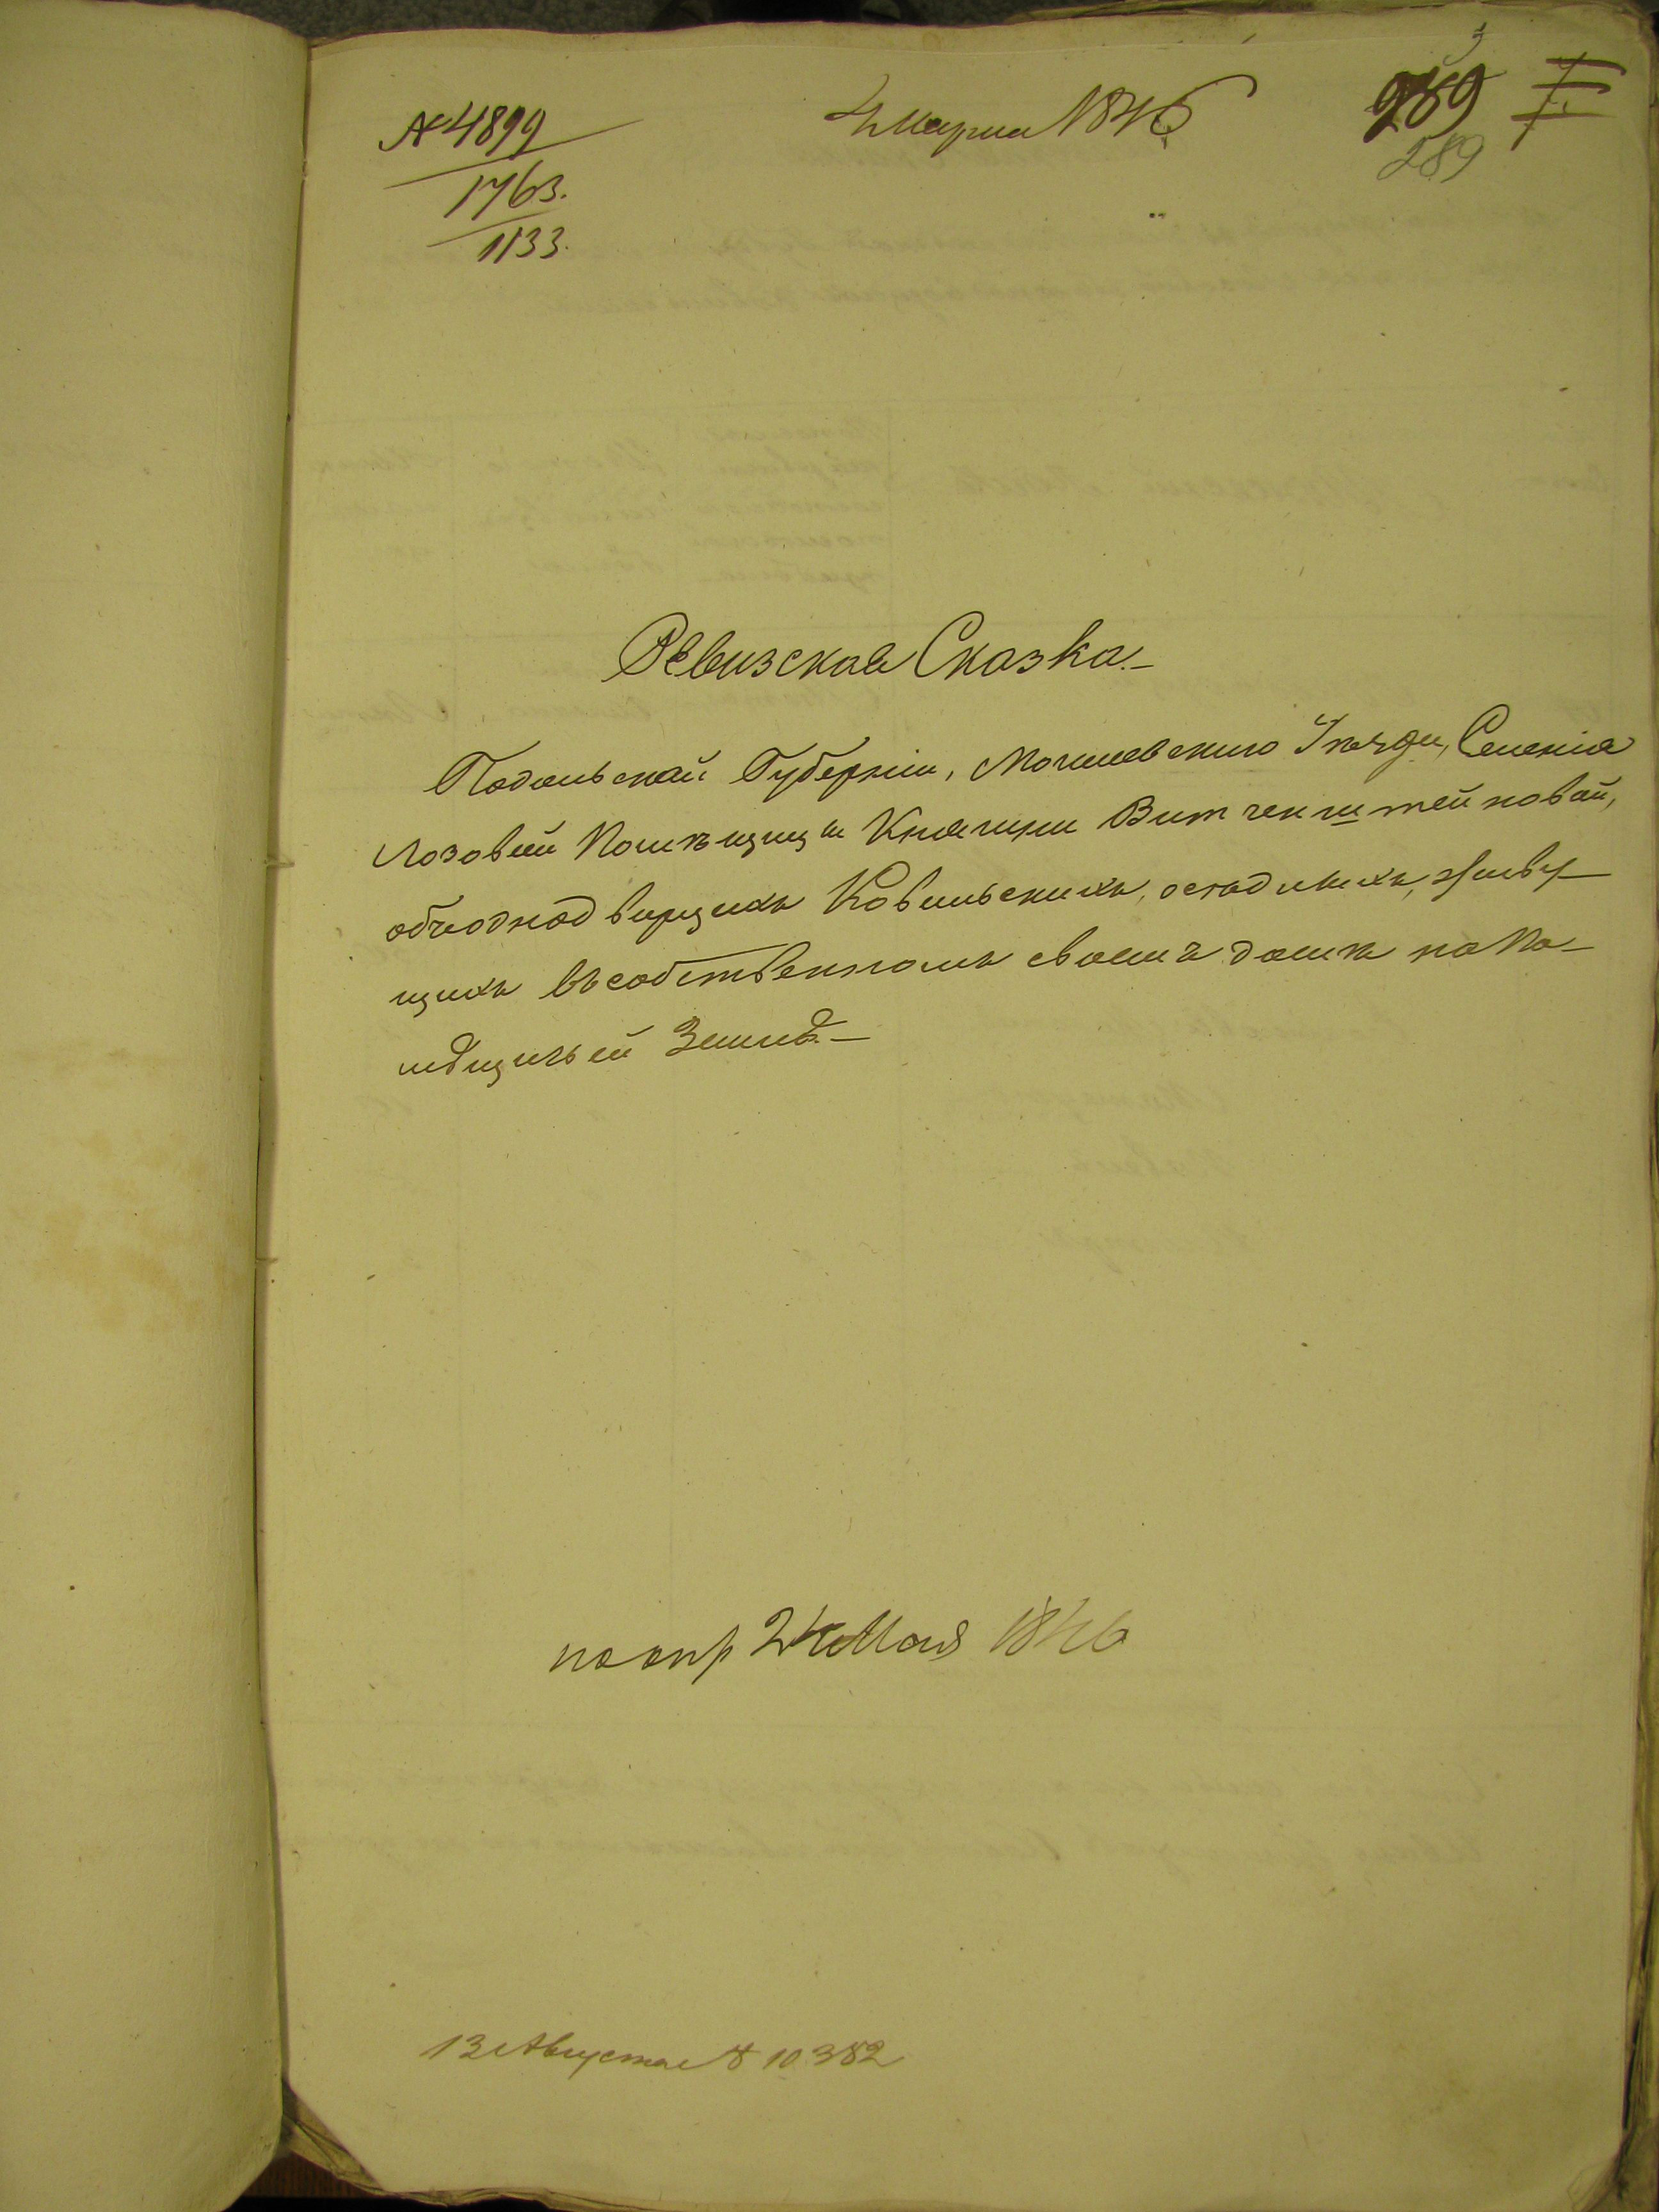 № 4899
1763.
1133.
4 Марта 1846
289
289
Ревизская Сказка.–
Подольской Губерніи, Могилевскаго Уѣзда, Селенія
Лозовый Помѣщицы Княгини Витгенштейновой,
объ однодворцахъ Ковальскихъ, осѣдлыхъ, живу–
щихъ въ собственномъ своемъ домѣ на По–
мѣщичьей Землѣ.–
по опр 24 Мая 1846
13 Августа № 10382